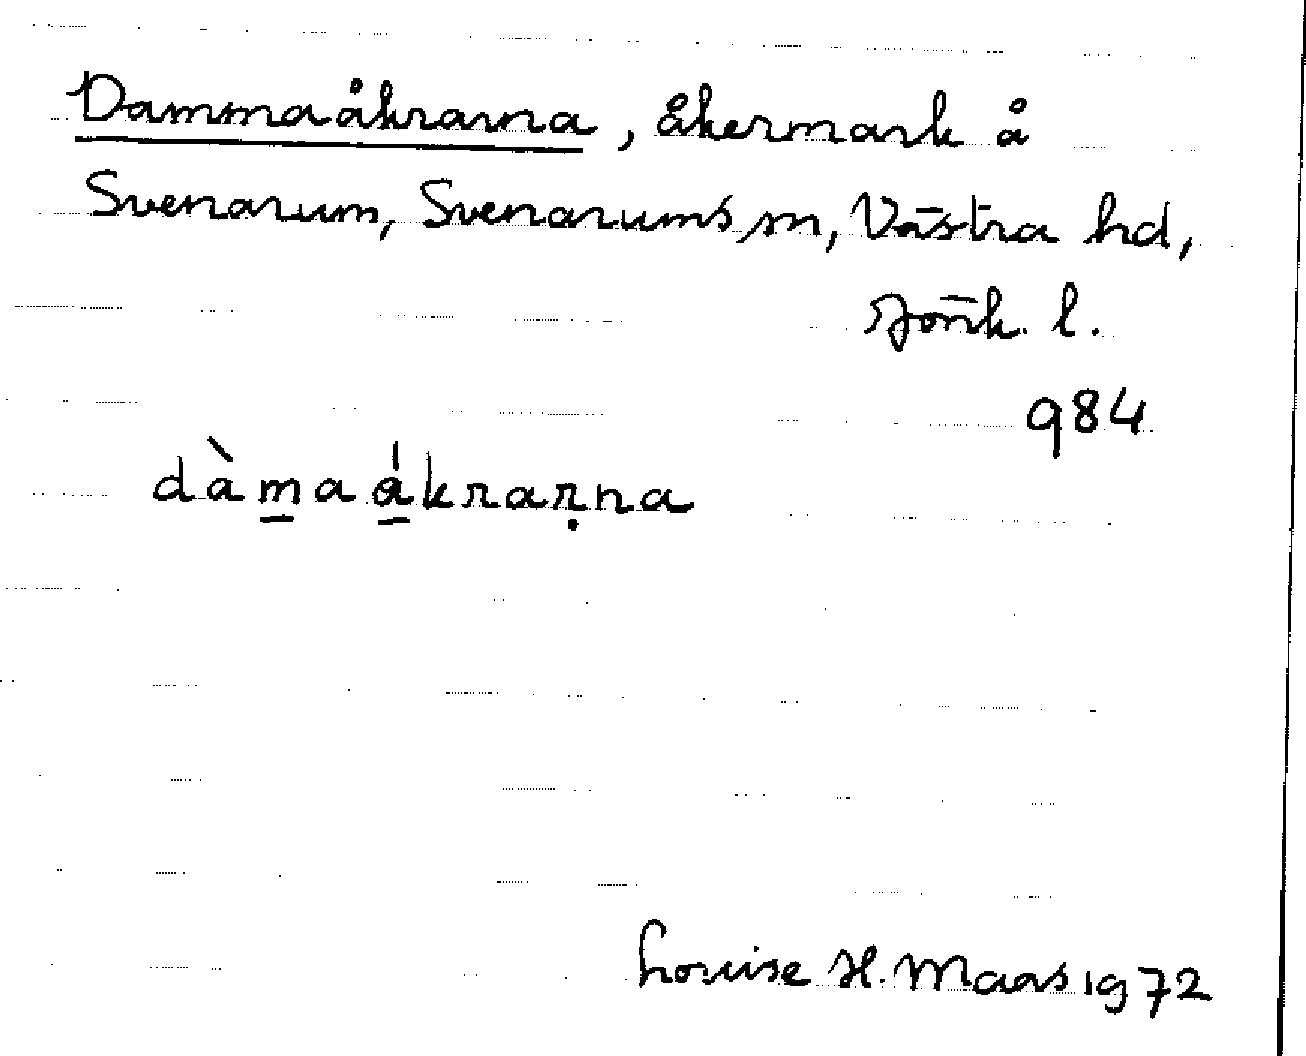 Dammaåkrarna, åkermark å
Svenarum, Svenarums sn, Västra hd,
Jönk. l.
984
dàm̱aá̱kraṛna
Louise H. Maas 1972